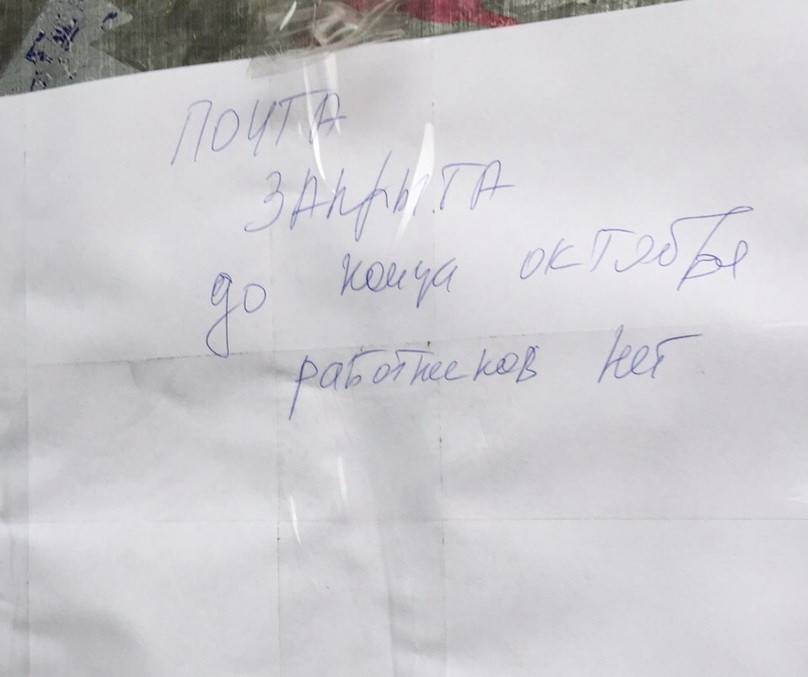 ПОЧТА
ЗАКРЫТА
до конца октября
работников нет